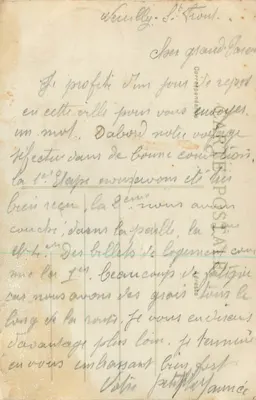 Neuilly St Front
Mes grands Parents
Je profite d'un jour de repos
en cette ville pour vous envoyer
un mot. D'abord notre voyage
s'effectue dans de bonne condition,
la 1ère Etape nous avons été
bien reçu, la 2ème nous avons
couché dans la paille, la 3ème
et 4ème Des billets de logement com
me la 1ère. beaucoup de fatigue
car nous avons des grais tous le
long de la route. Je vous en dirais
d'avantage plus loin. Je termine
en vous embrassant bien fort
Votre petit fils
CARTE POSTALE